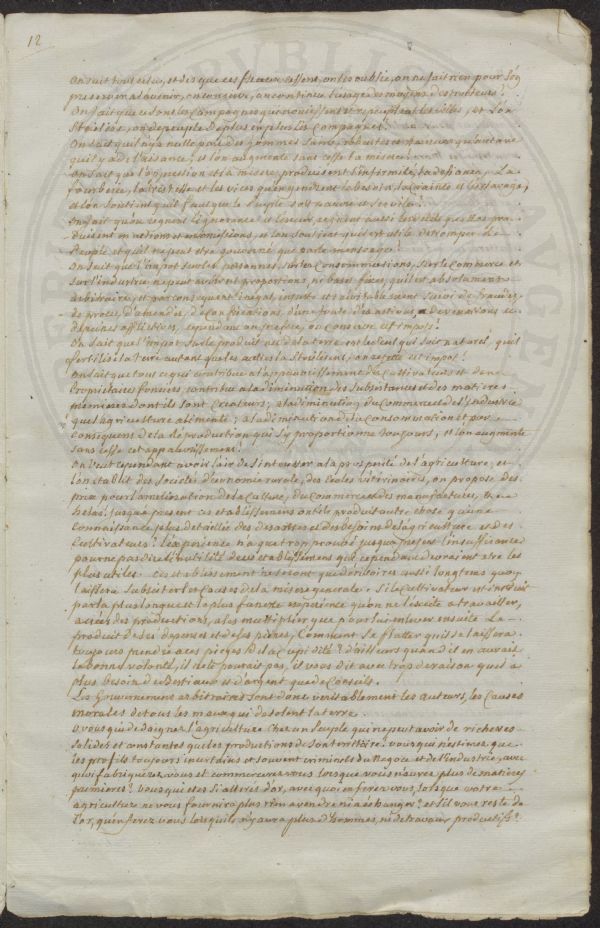 12
on sait tout cela, et des que ces fleaux cessent on les oublie, on ne fait rien pour s'en
preserver al'avenir, on conserve, on continue l'usage des moyens destructeurs!
on sait que ce sont les Campagnes qui nourissent et repeuplent les villes, et l'on
depeuple de plus en plus les Campagnes!
on sait qu'il n'y a nulle part des hommes sains, robustes et heureux qu'autant
qu'il y a de l'aisance, et l'on augmente sans cesse la misere!
on sait que l'oppression et la misere produisent l'infirmité, la La
fourberie, la et les vices qu'engendrent le besoin, la crainte et l'esclavage,
et l'on soutient qu'il faut que le Peuple soit pauvre et servile!
on sait qu'on regnent l'ignorance et l'erreur, regnent aussi les
et l'on soutient qu'il est utile detromper le
Peuple et qu'il ne peut etre gouverné que par le mensonge!
on sait que l'impot sur les personnes, sur les Consommations, sur le Commerce et
sur l'industrie ne peut avoir ni proportions, ni bases fixes, qu'il est absolument
arbitraire, et par consequent inegal, injuste et inevitablement suivi de fraudes,
de procès, d'amendes, de Confiscations, d'une foule d'exactions, de vexations et
de peines afflictives, cependant on prefere, on conserve cet impot!
on sait que l'impot sur le produit net de la terre est le seul qui soit naturel, qu'il
fertilise la terre autant que les autres la sterilisent, on rejette cet impot!
on sait que tout ce qui contribue a l'appauvrissement du Cultivateur et du
Proprietaire foncier, contribue a la diminution des subsistances et des matieres
premieres dont ils sont Createurs; a la diminution du Commerce et de l'industrie
que l'agriculture alimente; a la diminution de la Consommation et par
consequent de la reproduction qui s'y proportionne toujours, et l'on augmente
sans cesse cet appauvrissement!
on veut cependant avoir l'air de s'interesser a la prosperité de l'agriculture, et
l'on etablit des societés d'economie rurale, des Ecoles veterinaires, on propose des
prix pour l'amelioration de la Culture, du Commerce et des manufactures, &c
helas! jusqu'a present ces etablissemens ont ils produit autre chose qu'une
Connaissance plus detaillée des desastres et des besoins de l'agriculture et des
Cultivateurs! l'experience n'a que trop prouvé jusqu'a present l'insuffisance
pour ne pas dire l'inutilité de ces etablissemens qui cependant devraient etre les
plus utiles. Ces etablissement ne seront que derisoires aussi longtems qu'on
laissera subsister les Causes de la misere generale. Si le Cultivateur est instruit
par la plus longue et la plus funeste experience qu'on ne l'excite a travailler,
a créer des productions, a les multiplier que pour lui enlever ensuite le
produit de ses depenses et de ses peines, Comment se flatter qu'il se laissera
toujours prendre a ces pieges de la Cupidité? d'ailleurs quand il en aurait
la bonne volonté, il ne le pourait pas, il vous dit avec trop de raison qu'il a
plus besoin de Bestiaux et d'argent que de Conseils.
Les Gouvernemens arbitraires sont donc veritablement les auteurs, les Causes
morales de tous les maux qui desolent la terre.
O vous qui dedaignez l'agriculture Chez un Peuple qui ne peut avoir de richesses
solides et constantes que les productions de son territoire. vous qui n'estimez que
les profits toujours incertains et souvent criminels du Negoce et de l'industrie, avec
quoi fabriquerez vous et commercerez vous lorsque vous n'aurez plus de matieres
premieres? vous qui etes si alterés d'or, avec quoi en ferez vous, lorsque votre
agriculture ne vous fournira plus rien a vendre ni a echanger? et s'il vous reste de
l'or, qu'en ferez vous lorsqu'il n'y aura plus d'hommes, ni de travaux productifs?